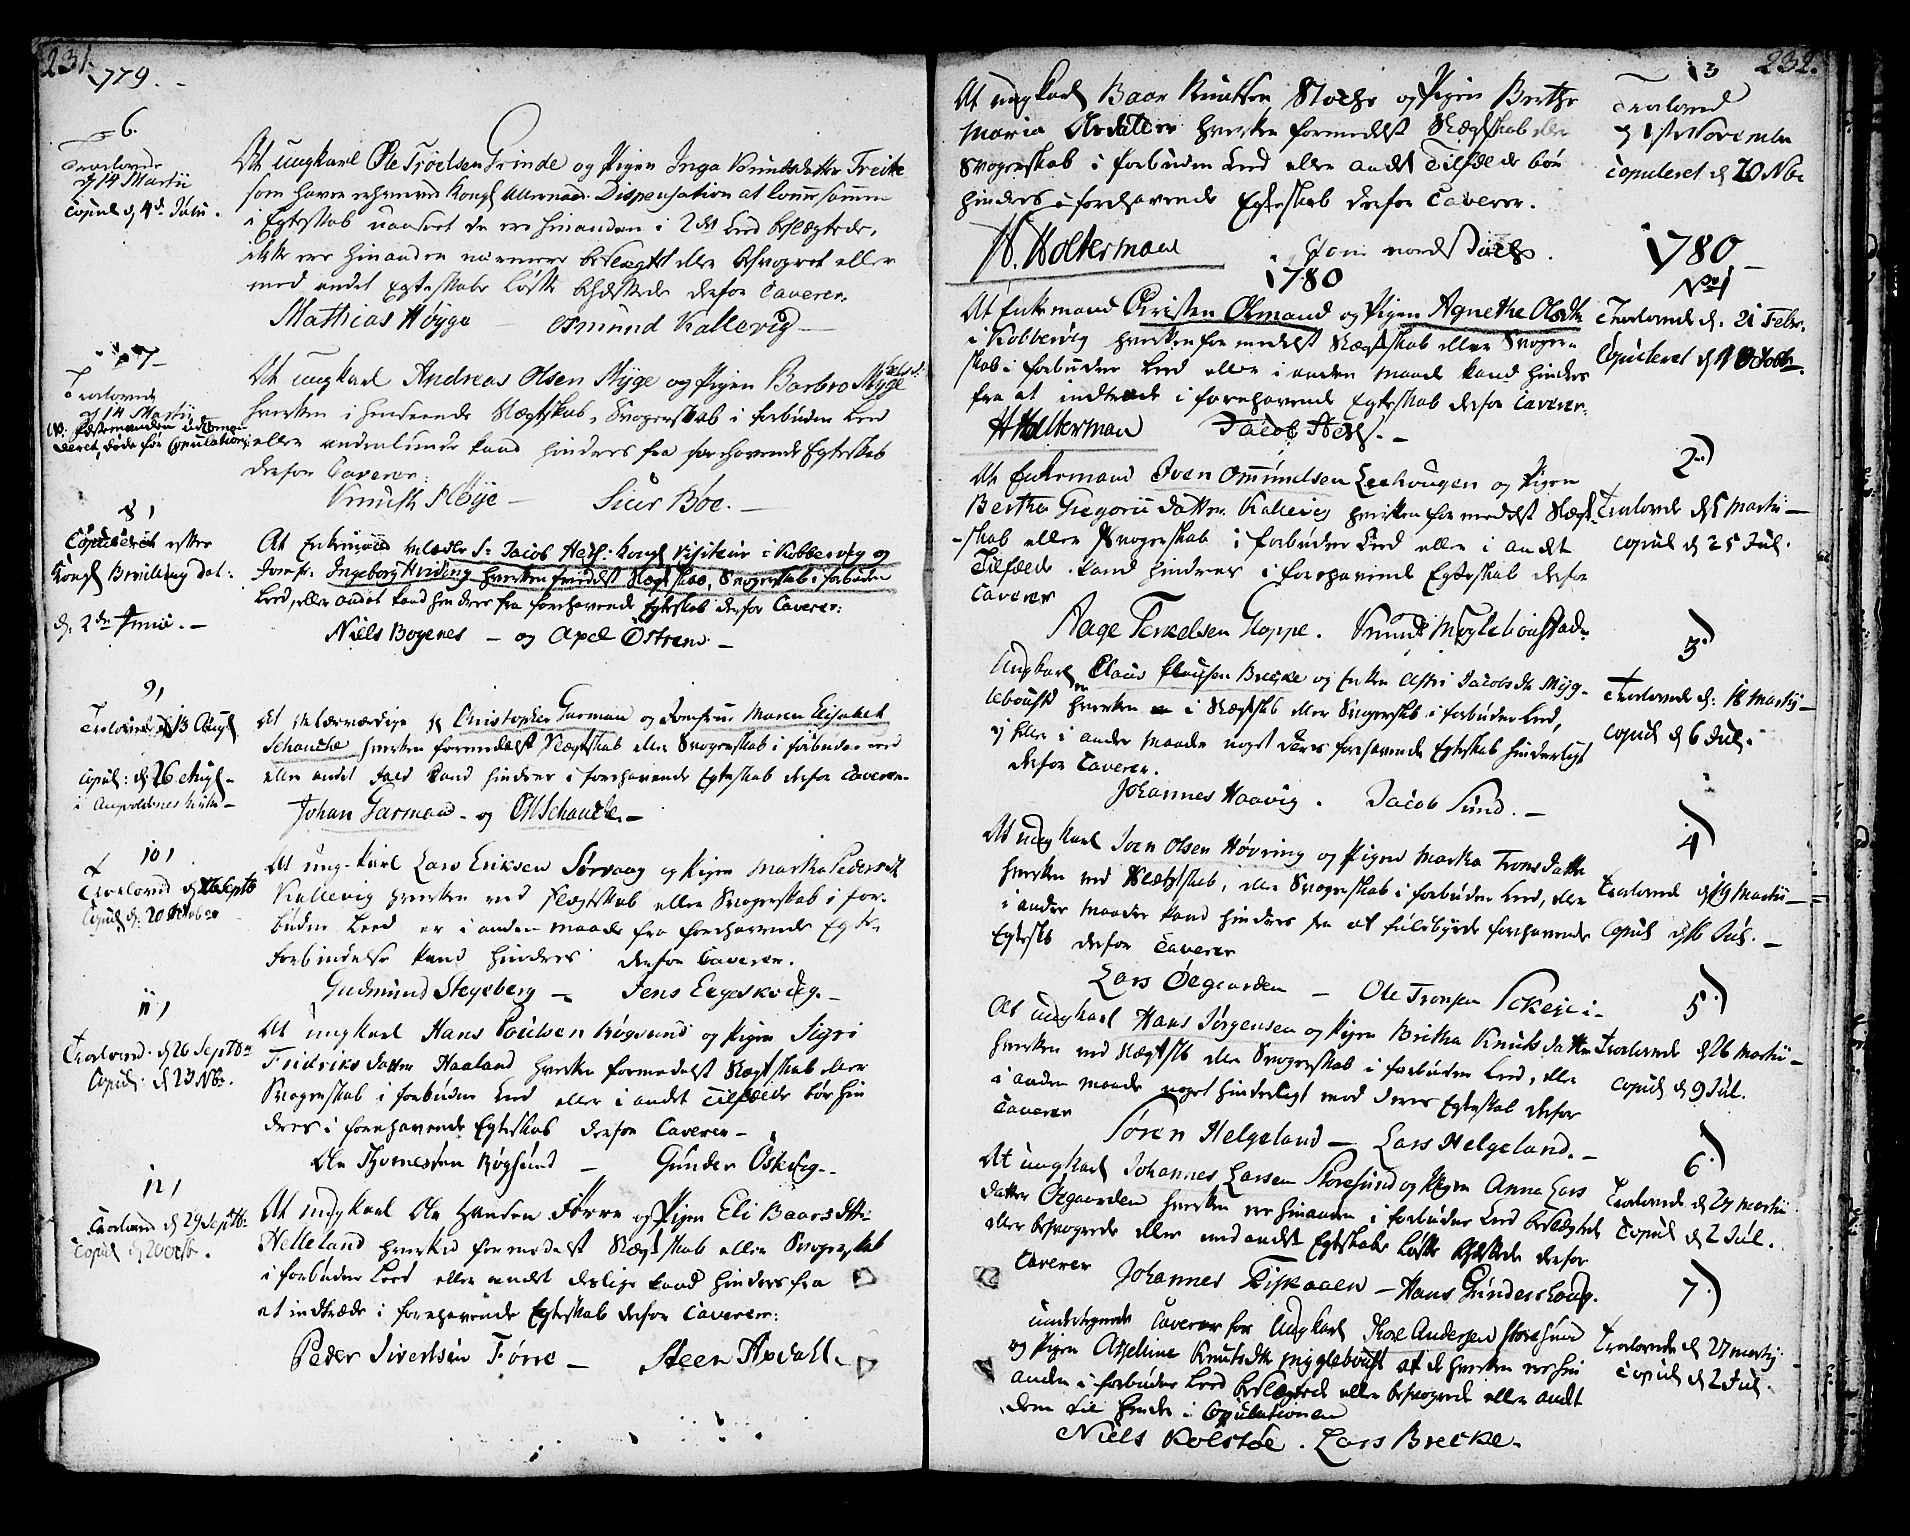 231.
1779. -
6.
Trolovede
d 14 Martii
Copul d 4de Julii.
At Ungkarl Ole Troelsen Grinde og Pigen Inga Knudsdatter Treike
som haver erhvervet Kongl Allernaad. Dispensation at komme sammen
i Egteskab uanseet de ere hinanden i 2det Leed beslægtede,
ikke ere hinanden nærmere beslegtet eller besvogret eller
med andet Egteskabs Løfte behæftede derfor Caverer.
Mathias Høyge — Osmund Kallevig —
7
Trolovede
d 14 Martii
NB: Fæstemanden udkoman-
deret, døde før Copulation:
At ungkarl Andreas Olsen Nyge og Pigen Barbro Nyge
hverken i henseende Slegtskab, Svogerskab i forbuden Leed
eller andenlunde kand hindres fra forehavende Egteskab
derfor Caverer:
Knuth Høije — Siur Böe. —
8)
Copuleret efter
Kongl Bevilling dat:
d. 2den Junii. —
At Enkemand velædle Sr Jacob Heth. Kongl Visiteur i Kobbervig og
Jomfr. Ingeborg Hviding hverken formedelst Slegtskab, Svogerskab i forbuden
Leed, eller andet kand hindres fra forehavende Egteskab derfor Caverer:
Niels Bogenes — og Apel Østrem —
9)
Trolovede d 13 Augl
Copul: d. 26 Augl -
i Augvoldsnes Kirke —
At velærværdige Hr Christopher Garman og Jomfrue Maren Elisabet
Schancke hverken formedelst Slegtskab eller Svogerskab i forbuden Leed
eller andet Fald kand hindres i forehavende Egteskab derfor Caverer-
Johan Garman - og OM Schancke. —
10)
Trolovede d 26 Septbr
Copul d. 20 October
At ung-karl Lars Eriksen Sørvaag og Pigen Martha Peders dt
Kallevig hverken ved Slegtskab eller Svogerskab i for-
buden Leed er i anden maade fra forehavende Egte-
forbindelse kand hindres derfor Caverer.
Gudmund Stegeberg — Jens Eegeskoeg. —
11)
Trolovede d 26 Septbr
Copul: d 23 Nbr.
At ungkarl Hans Poulsen Røgsund og Pigen Sigri
Fridriks datter Haaland hverken formedelst Slegtskab eller
Svogerskab i forbuden Leed eller i andet Tilfælde bør hin
dres i forehavende Egteskab derfor Caverer —
Ole Thornessen Røgsund — Gunder Oskeg. -
12)
Trolovede d 29 Septbr:
Copul d 20 octbr.
At ungkarl Ole Hansen Førre og Pigen Eli Baars dtt:
Helleland hverken formedelst Slegtskab eller Svogerskab
i forbuden Leed eller andet deslige kand hindres fra
at indtræde i forehavende Egteskab derfor Caverer:
Peder Sivertsen Førre — Steen Apdahl. -
232.
13
Trolovede
d 1ste November
Copuleret d 20 Nbr
At ungkarl Baar Knutsen Stoche og Pigen Berthe
Maria Ardalder hverken formedelst Slegtskab eller
Svogerskab i forbuden Leed eller andet Tilfælde bør
hindres i forehavende Egteskab derfor Caverer.
H. Holterman
1780
1780 -
No 1
Trolovede d: 21 Febr.
Copuleret d 1 Octobr.
At Enkemand Christen Osmand og Pigen Agnethe Olsdtr
i Kobbervig hverken formedelst Slegtskab eller Svoger-
skab i forbuden Leed eller i anden maade kand hindres
fra at indtræde i forehavende Egteskab derfor Caverer.
H Holterman Jacob Heth. —
2)
Trolovede d 5 Martii —
Copul d 25 Jul.
At Enkemand Iver Omundsen Leehougen og Pigen
Bertha Gregorii datter Kallevig hverken formedelst Slegt-
-skab eller Svogerskab i forbuden Leed eller i andet
Tilfælde kand hindres i forehavende Egteskab derfor
Caverer
Aage Terkelsen Hoppe. Knud Møgleboustad
3)
Trolovede d: 18 Martii —
Copul d 6 Jul.
Ungkarl Claus Clausen Brecke og Enken Astri Jacobsdtr Myg-
leboust hverken er i Slegtskb eller Svogerskb i forbuden Leed,
ej heller i anden Maade noget deres forehavende Egteskb hinderligt
derfor Caverer.
Johannes Haavig. Jacob Sund. —
4)
Trolovede d 19 Martii —
Copul d 16 Jul. —
At ungkarl Joen Olsen Høvring og Pigen Martha Trons datter
hverken ved Slegtskab, eller Svogerskab i forbuden Leed, eller
i anden Maade kand hindres fra at fuldbyrde forehavende
Egteskb derfor Caverer
Lars Øegaarden — Ole Tronsen Sokeje -
5)
Trolovede d 26 Martii —
Copul d 9 Jul.
At ungkarl Hans Jørgensen og Pigen Britha Knuts datter
hverken ved Slegtskb eller Svogerskab i forbuden Leed, eller
i anden maade noget hinderligt med deres Egteskab derfor
Caverer
Søren Helgeland — Lars Helgeland. —
6)
Trolovede d 27 Martii
Copul d 2 Jul.
At ungkarl Johannes Larsen Storesund og Pigen Anna Lars
datter Øegaarden hverken ere hinanden i forbuden Leed beslegtet
eller besvogrede eller med andet Egteskabs Løfte behæftede derfor
Caverer
Johannes Fiskaaen — Hans Gunders Houg.
7)
Trolovede d 27 Martij
Copul d 2 Jul.
Undertegnede Caverer for Ungkarl Thore Andersen Storesund
og Pigen Asseline Knutsdtr Myggleboust at de hverken ere hin
anden i forbuden Leed beslegtede eller besvogrede eller andet
dem til hinder i Copulationen
Niels Kolstøe. Lars Brecke.